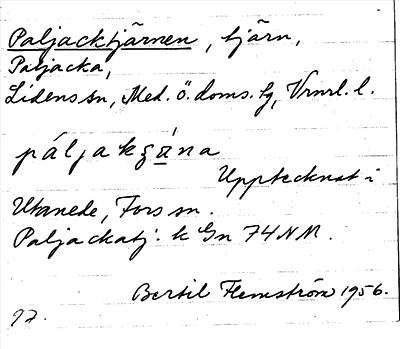 Paljacktjärnen, tjärn,
Paljacka,
Lidens sn, Med. ö. doms. lg, Vrnrl. l.
páljakʒána
Upptecknat i
Utanede, Fors sn.
Paljackatj. k Gn 74 NM.
Bertil Flemström 1956.
97.